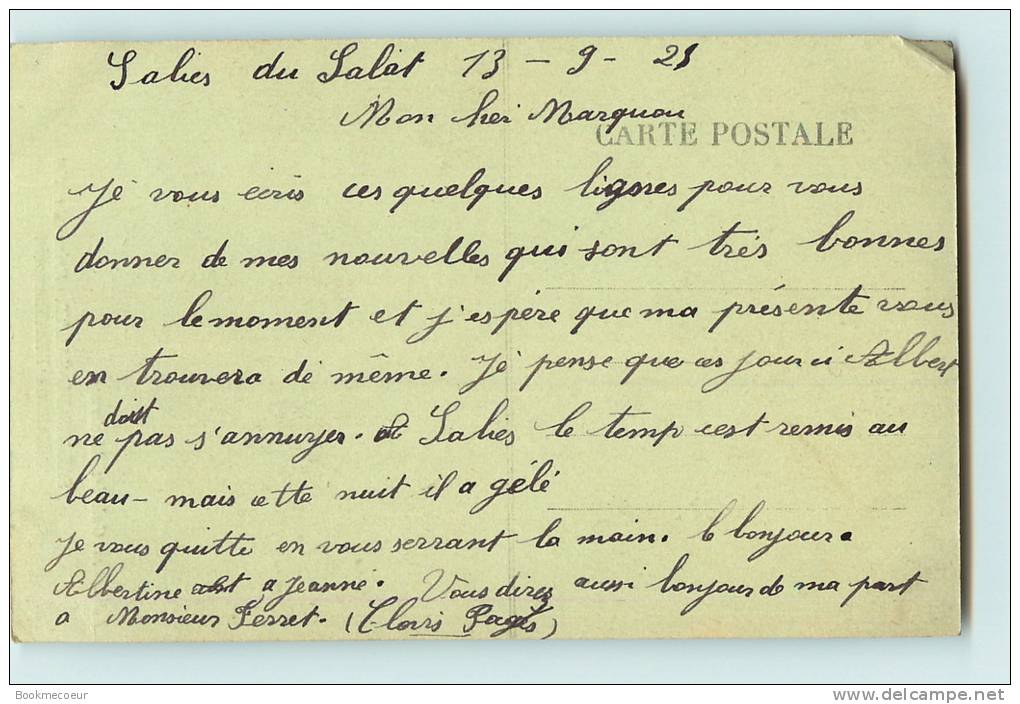 Salies du Salat 13 - 9 - 21
Mon cher Marquou
CARTE POSTALE
Je vous écris ces quelques lignes pour vous
donner de mes nouvelles qui sont très bonnes
pour le moment et j'espère que ma présente vous
en trouvera de même. Je pense que ces jour ci Albert
doit
ne pas s'annuyer. A Salies le temp cest remis au
beau - mais cette nuit il a gélé
Je vous quitte en vous serrant la main. le bonjour a
Albertine et a Jeanne. Vous direz aussi bonjour de ma part
a Monsieur Ferret. (Clovis Pagès)
Bookmecoeur
delcampe.net